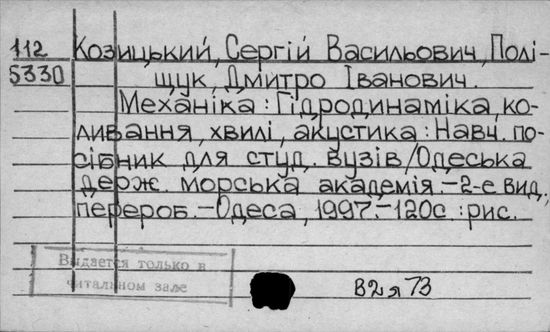 112 Козицький, Сергій Васильович, Полі-
5330 щук, Дмитро Іванович.
Механіка: Гідродинаміка, ко-
ливання, хвилі, акустика: Навч. по-
сібник для студ. вузів/Одеська
держ. морська академія.-2-е вид.,
перероб.-Одеса, 1997.-120с.:рис.
Выдается только в
читальном зале
В2я73